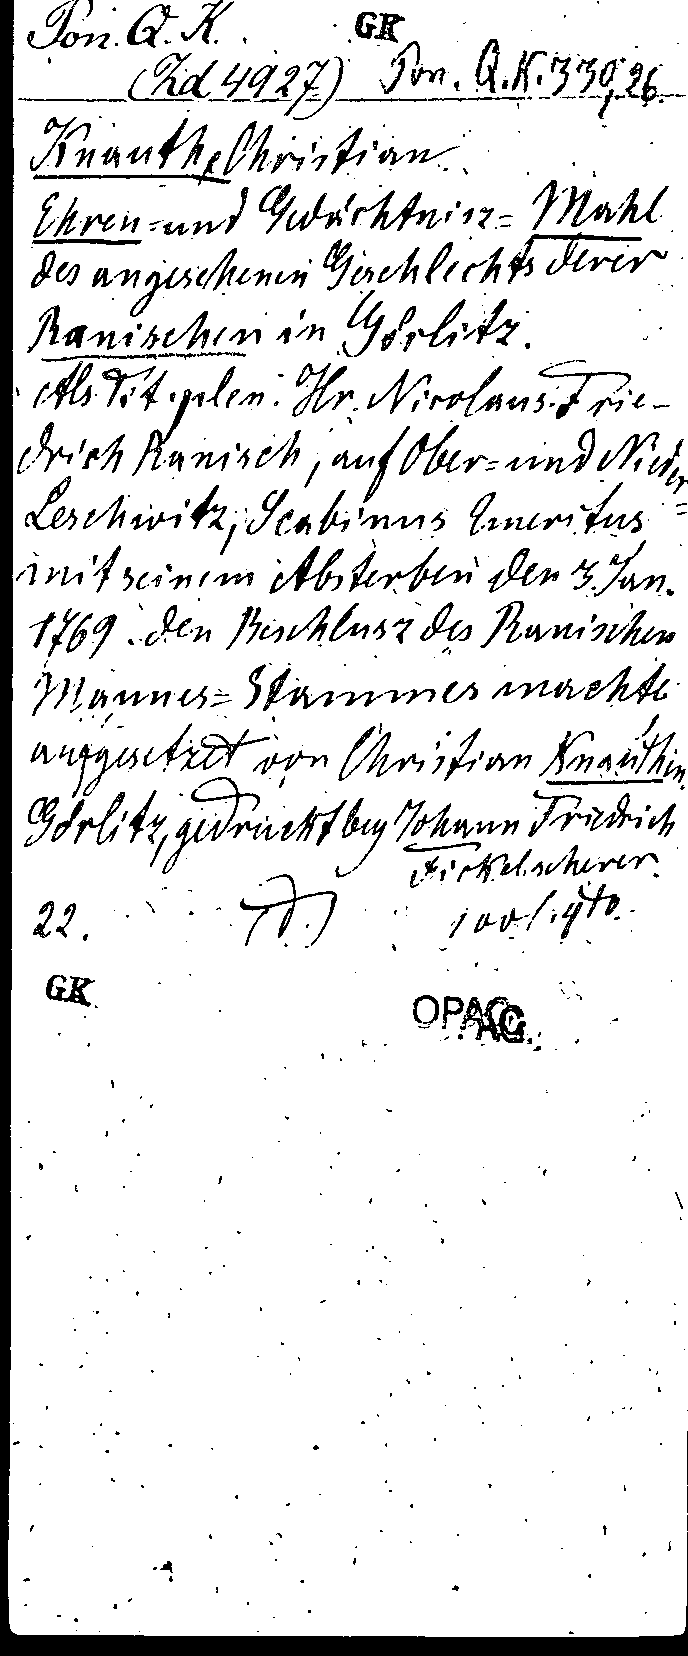 Pon. Q. K. GK
(Zd 4927) Pon. Q. K. 330, 26.
Knauthe, Christian
Ehren-und Gedächtnisz-Mahl
des angesehenen Geschlechts derer
Ranischen in Görlitz.
Als Tit. plen. Hr. Nicolaus Frie-
drich Ranisch, auf Ober-und Nieder-
Leschwitz, Scabinus Emeritus
mit seinem Absterben den 3. Jan.
1769. den Beschlusz des Ranischen
Mannes-Stammes machte
aufgesetzet von Christian Knauth in
Görlitz, gedruckt bey Johann Friedrich
Fickelscherer.
22. 4to.
GK OPAC
AG.